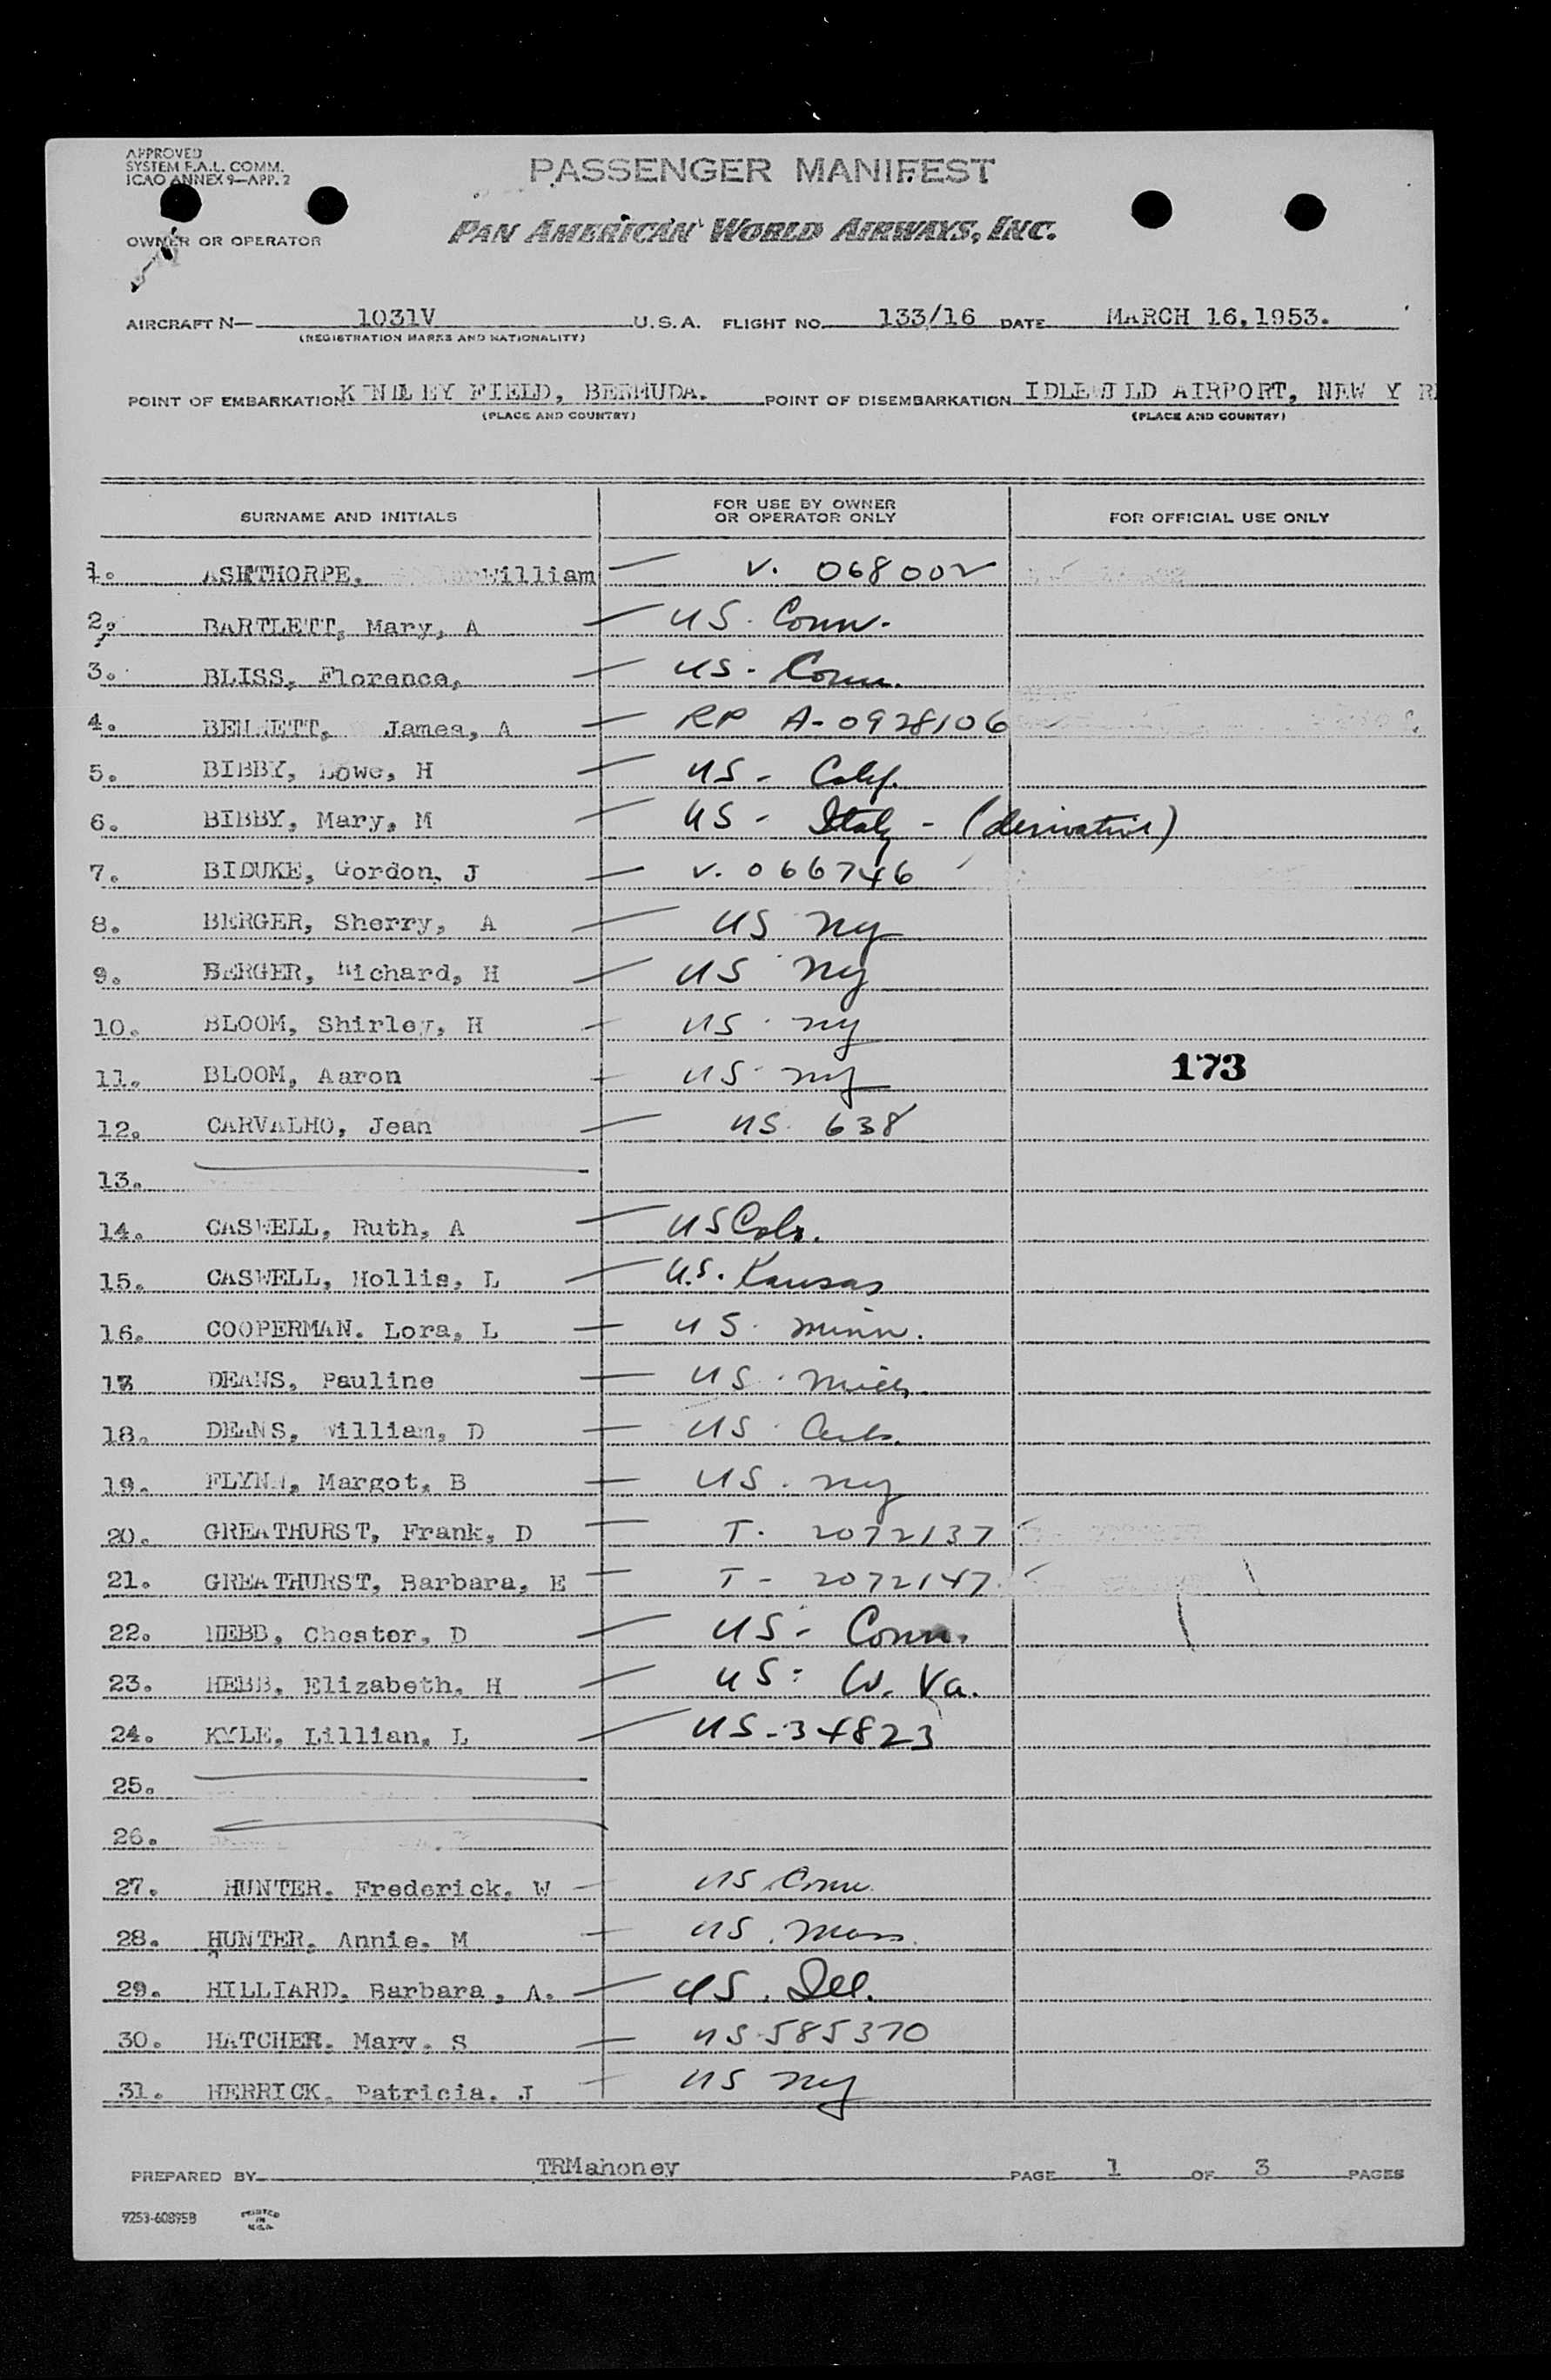 APPROVED
SYSTEM F.A.L. COMM.
ICAO ANNEX 9—APP. 2
PASSENGER MANIFEST
OWNER OR OPERATOR
PAN AMERICAN WORLD AIRWAYS, INC.
AIRCRAFT N— 1031V U.S.A. FLIGHT NO. 133/16 DATE MARCH 16, 1953.
(REGISTRATION MARKS AND NATIONALITY)
POINT OF EMBARKATION KINDLEY FIELD, BERMUDA. POINT OF DISEMBARKATION IDLEWILD AIRPORT, NEW Y R
(PLACE AND COUNTRY) (PLACE AND COUNTRY)
SURNAME AND INITIALS FOR USE BY OWNER OR OPERATOR ONLY FOR OFFICIAL USE ONLY
1. ASHTHORPE, William — V. 068002
2. BARTLETT, Mary, A — US. Conn.
3. BLISS, Florence, — US - Conn.
4. BENNETT, James, A — RP A-0928106
5. BIBBY, Lowe, H — US - Calif.
6. BIBBY, Mary, M — US - Italy - (derivative)
7. BIDUKE, Gordon, J — V. 066746
8. BERGER, Sherry, A — US NY
9. BERGER, Richard, H — US NY
10. BLOOM, Shirley, H — US. NY
11. BLOOM, Aaron — US. NY 173
12. CARVALHO, Jean — US. 638
13.
14. CASWELL, Ruth, A — US Colo.
15. CASWELL, Hollis, L — U.S. Kansas
16. COOPERMAN. Lora, L — US. Minn.
17 DEANS, Pauline — US. Mich
18. DEANS, William, D — US.
19. FLYNN, Margot, B — US. NY
20. GREATHURST, Frank, D — T. 2072137
21. GREATHURST, Barbara, E — T - 2072147.
22. HEBB, Chester, D — US - Conn.
23. HEBB, Elizabeth, H — US: W. Va.
24. KYLE, Lillian, L — US-34823
25.
26.
27. HUNTER. Frederick. W — US. Conn.
28. HUNTER. Annie. M — US. Mass.
29. HILLIARD. Barbara, A. — US. Ill.
30. HATCHER. Mary. S — US 585370
31. HERRICK. Patricia. J — US NY
PREPARED BY TRMahoney PAGE 1 OF 3 PAGES
9253-60895B PRINTED IN U.S.A.